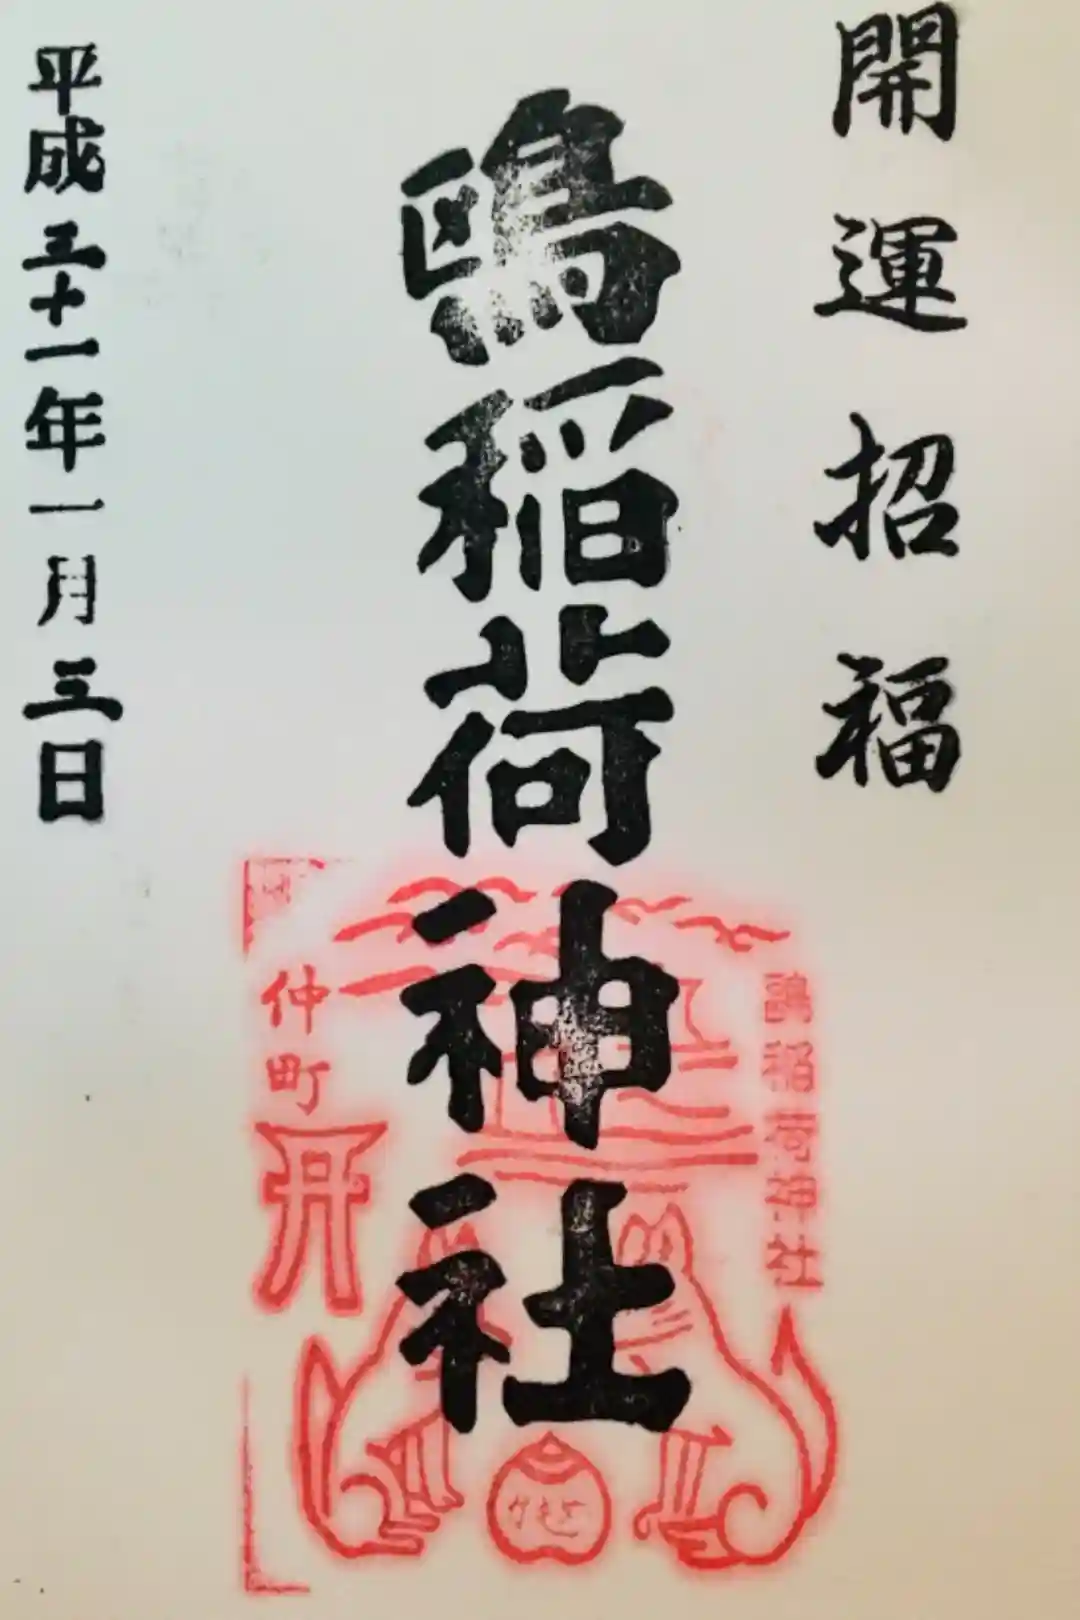 開運招福
鴎稲荷神社
平成三十一年一月三日
鷗稲荷神社
仲町